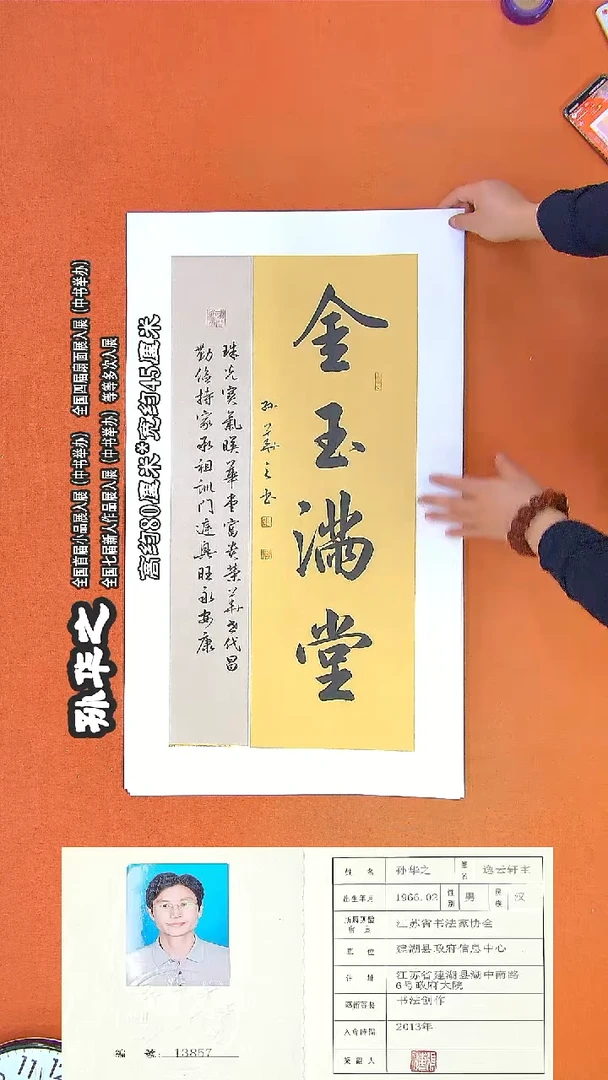 金玉满堂
孙華之书
珠光宝氣暎華堂富贵荣華世代昌
勤俭持家承祖训门庭興旺永安康
孙华之
全国首届小品展入展（中书举办） 全国四届扇面展入展（中书举办）
全国七届新人作品展入展（中书举办） 等等多次入展
高约80厘米*宽约45厘米
编 号: 13857
姓 名 孙华之 署名 逸云轩主
出生年月 1966.02 性别 男 民族 汉
江苏省书法家协会
单 位 建湖县政府信息中心
住 址 江苏省建湖县湖中南路
6号政府大院
书法创作
入会时间 2013年
11
12
1